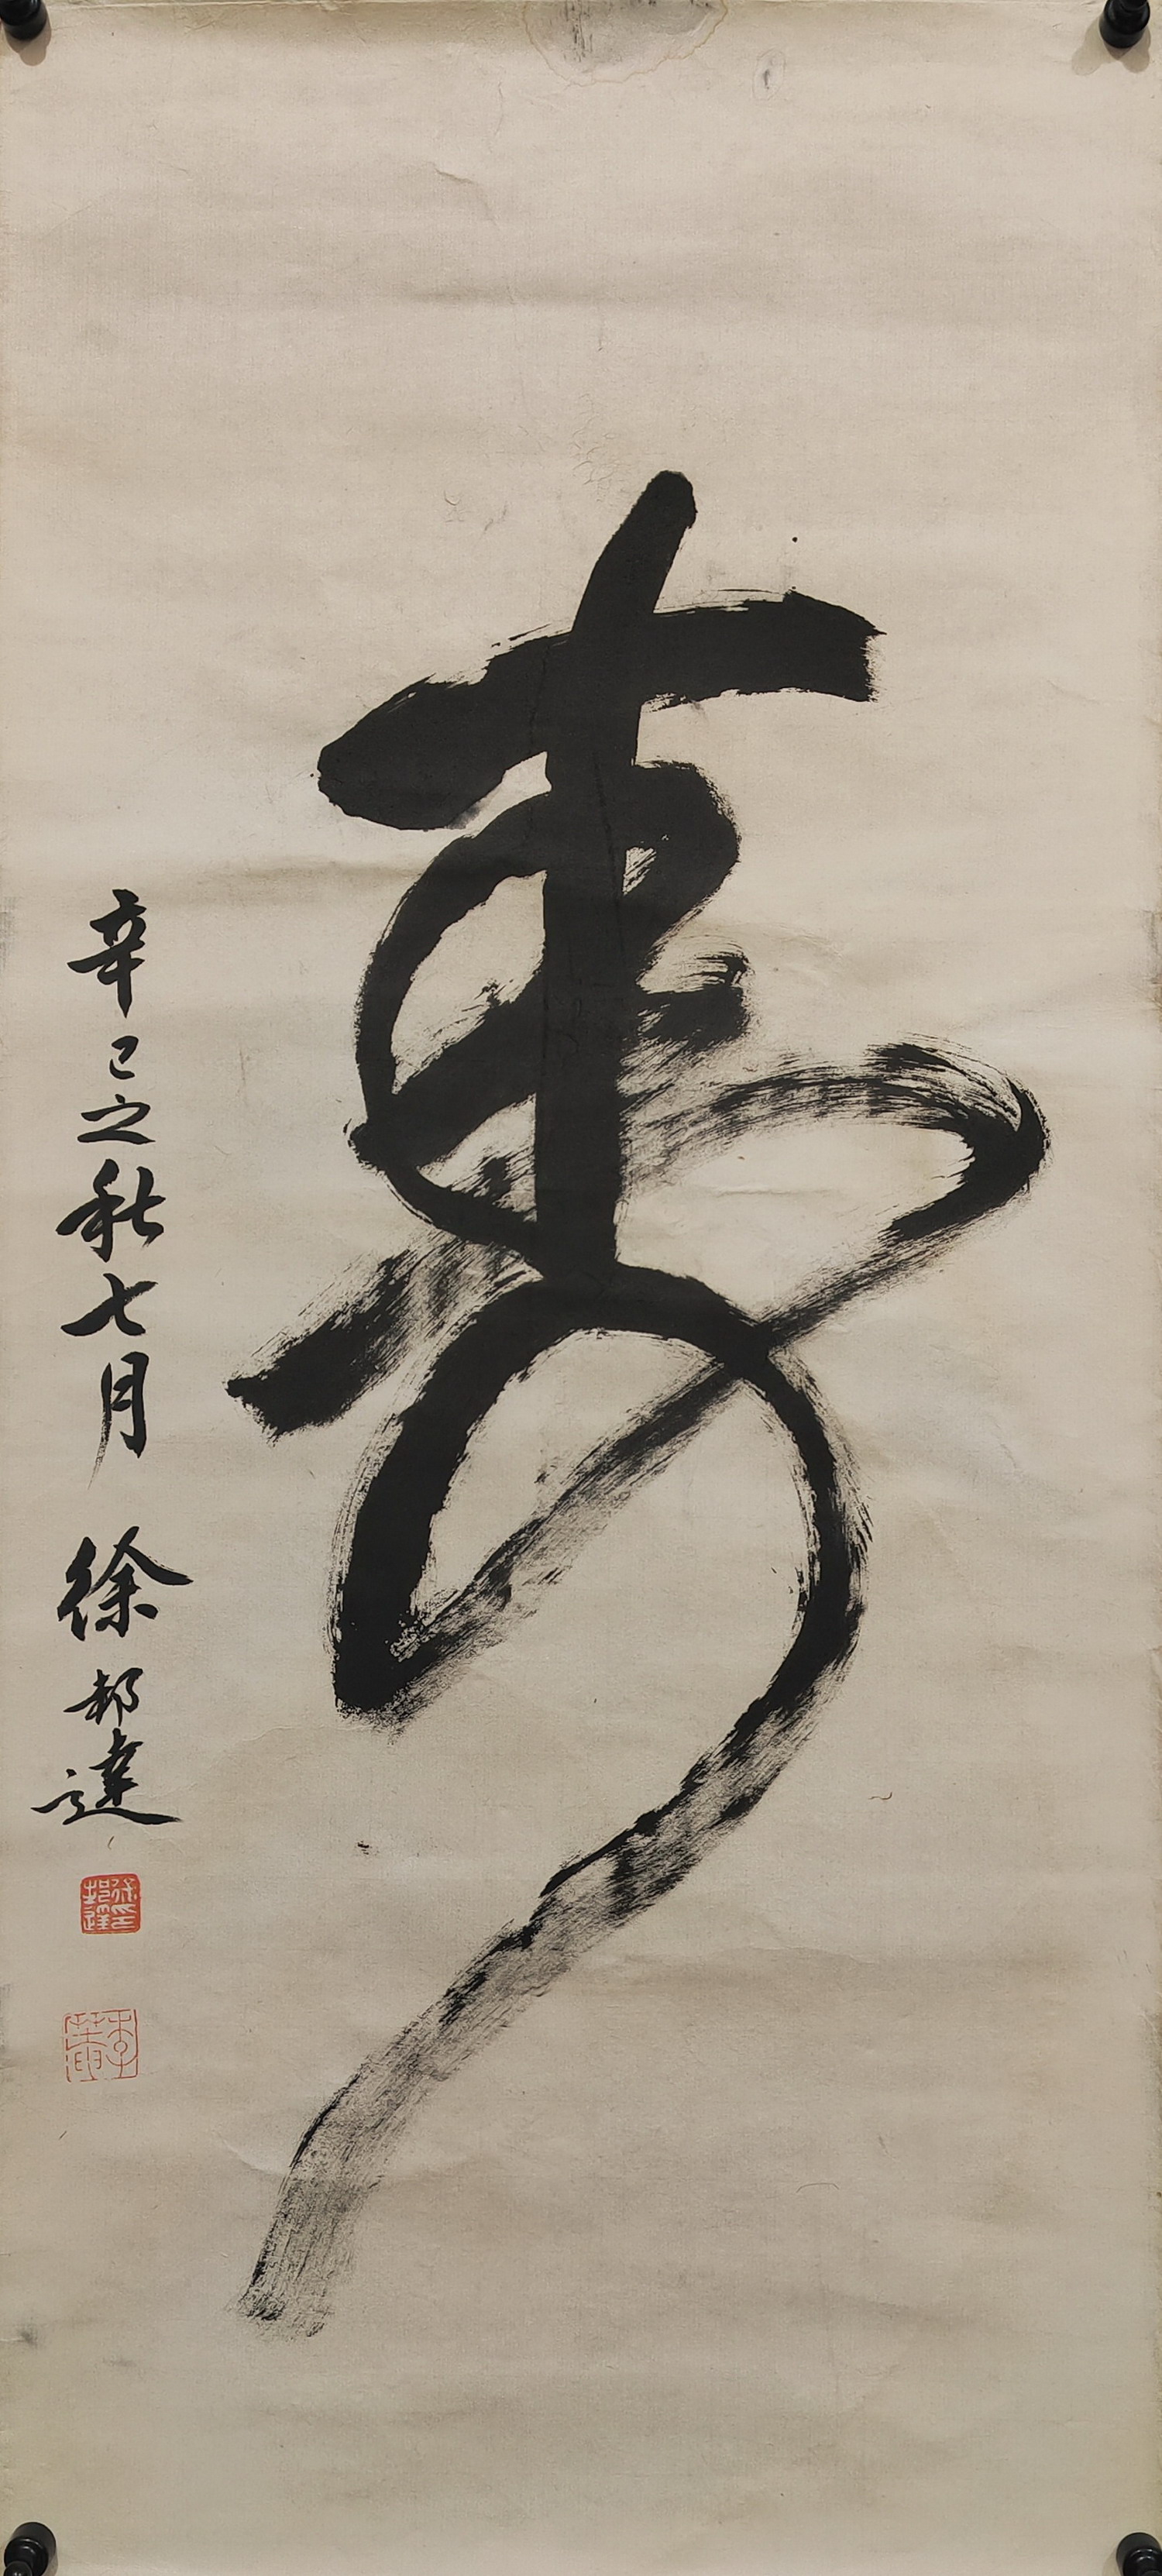 寿
辛巳之秋七月 徐邦達